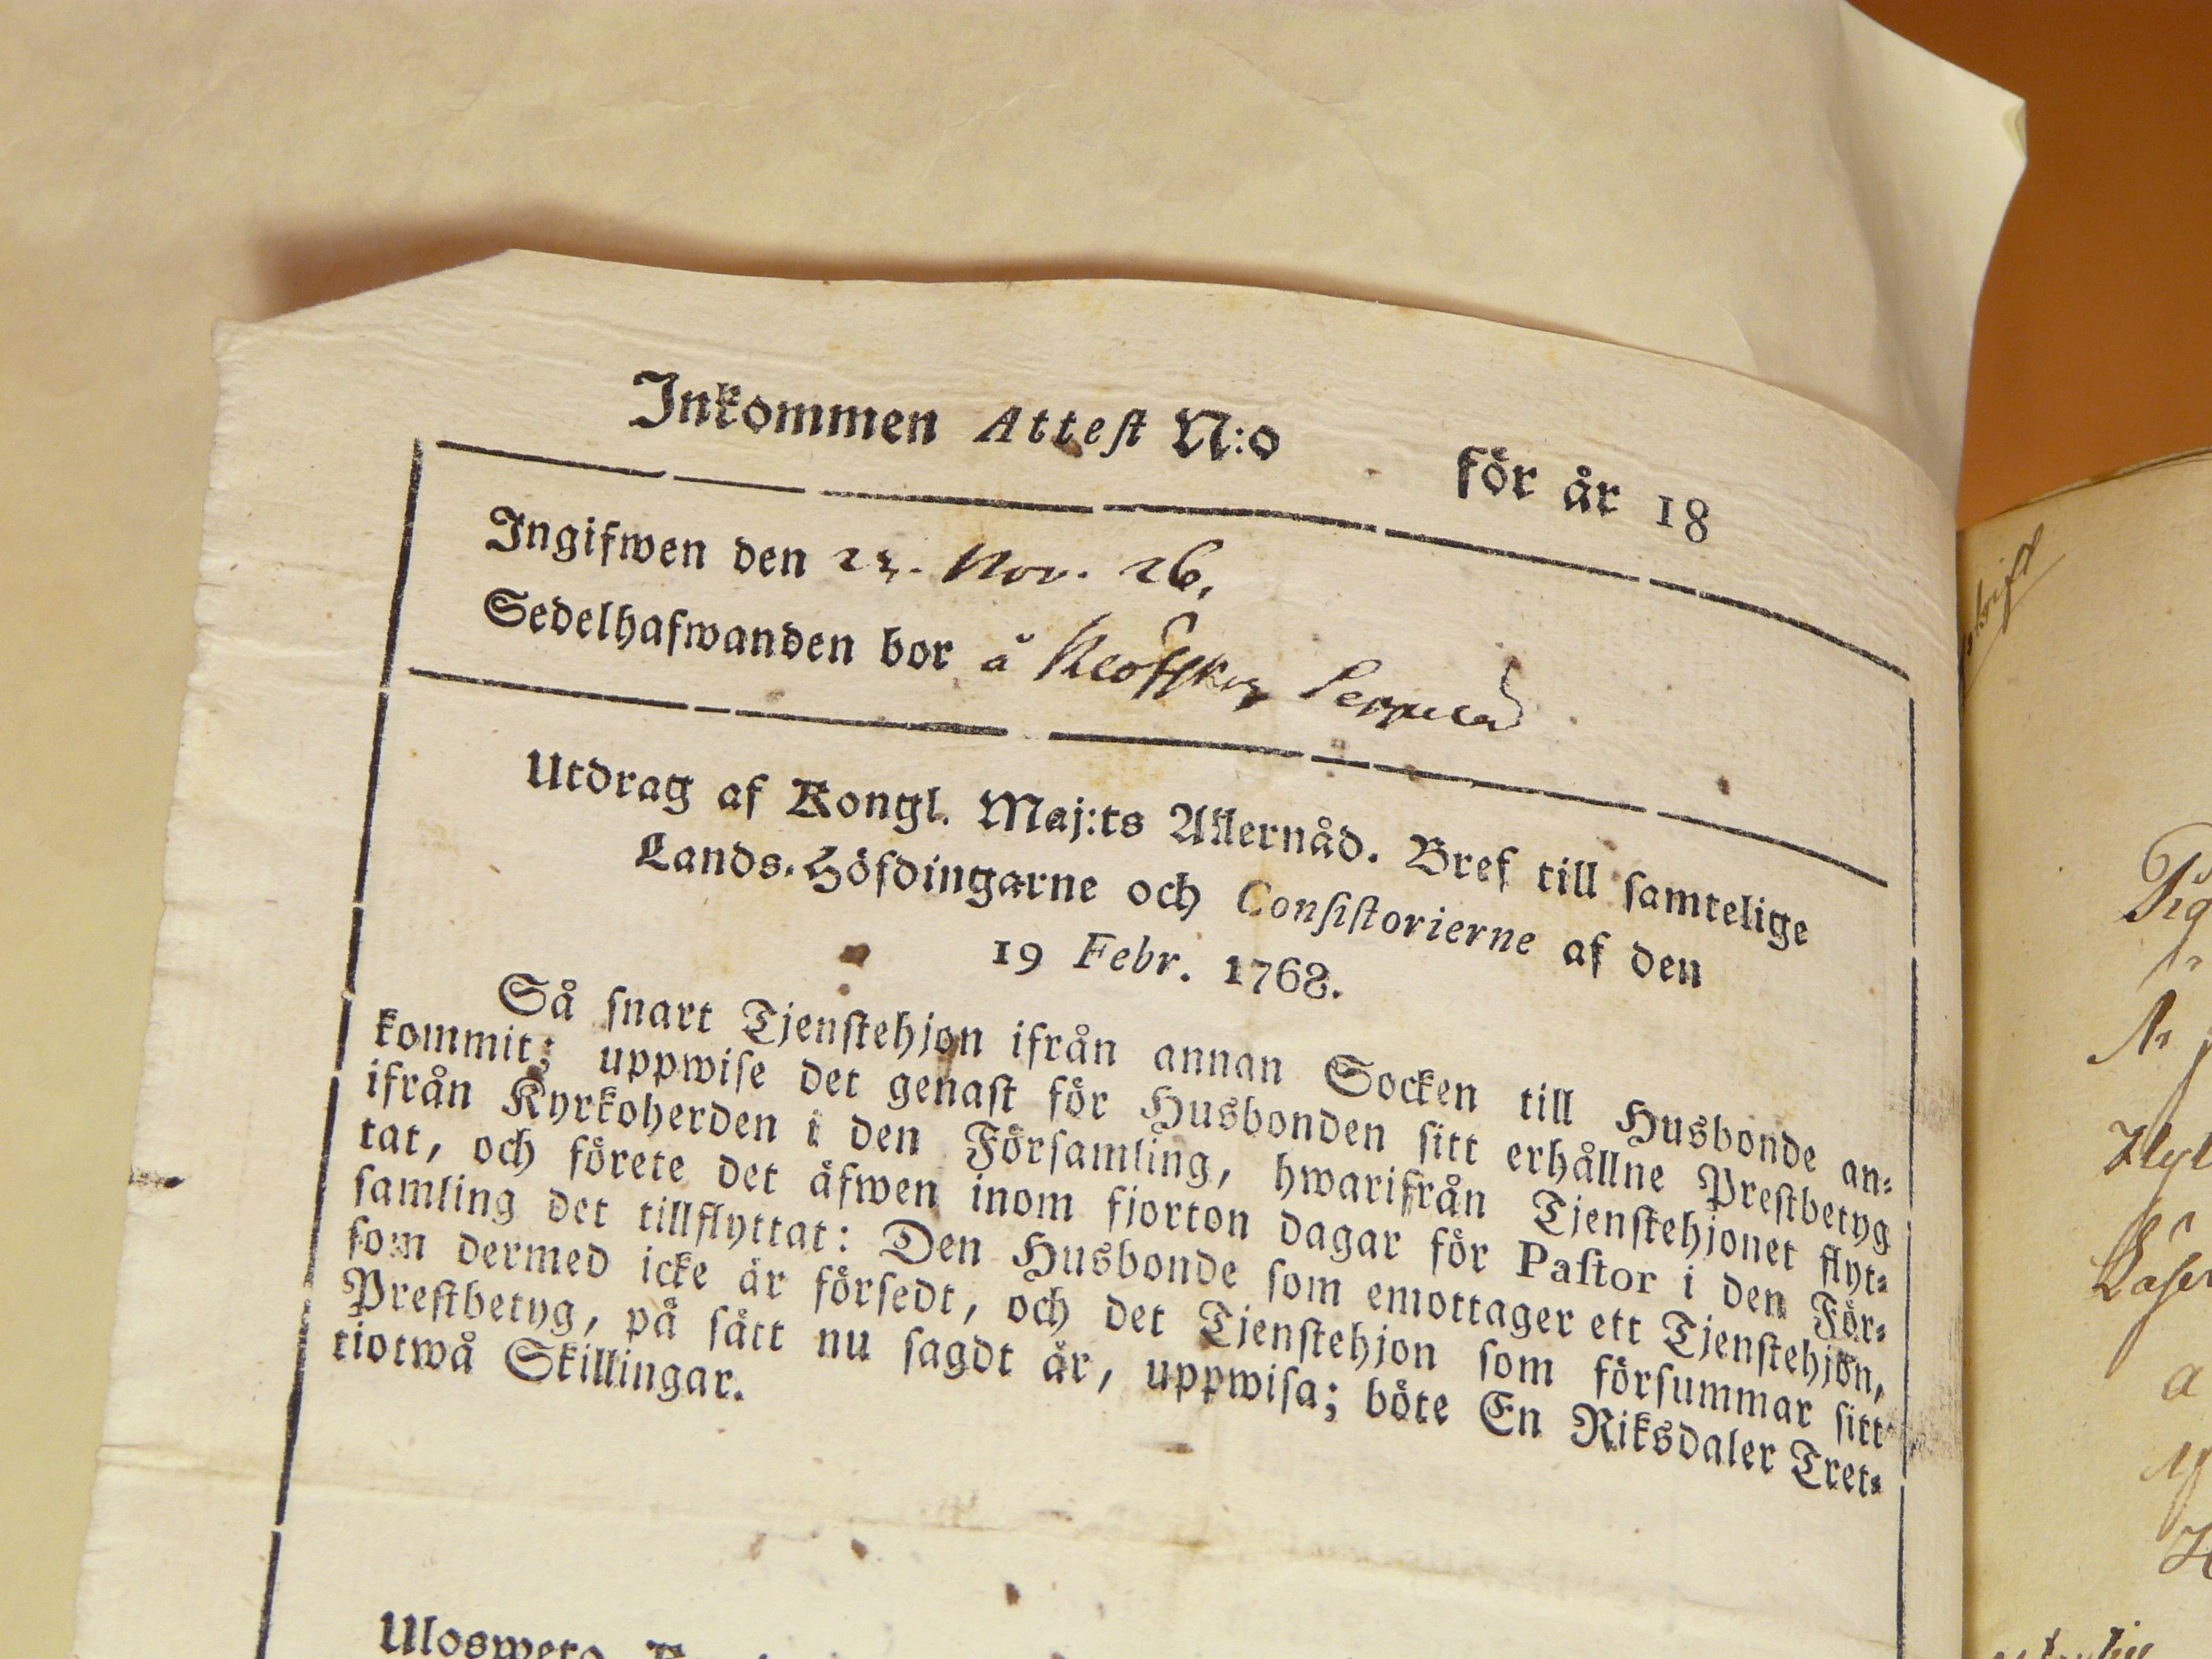 Inkommen Attest N:o för år 18
Ingifwen den 23. Nov. 26.
Sedelhafwanden bor å
Utdrag af Kongl. Maj:ts Allernåd. Bref till samtelige
Lands-Höfdingarne och Consistorierne af den
19 Febr. 1768.
Så snart Tjenstehjon ifrån annan Socken till Husbonde an-
kommit; uppwise det genast för Husbonden sitt erhållne Prestbetyg
ifrån Kyrkoherden i den Församling, hwarifrån Tjenstehjonet flyt-
tat, och förete det äfwen inom fjorton dagar för Pastor i den För-
samling det tillflyttat: Den Husbonde som emottager ett Tjenstehjon,
som dermed icke är försedt, och det Tjenstehjon som försummar sitt
Prestbetyg, på sätt nu sagdt är, uppwisa; böte En Riksdaler Tret-
tiotwå Skillingar.